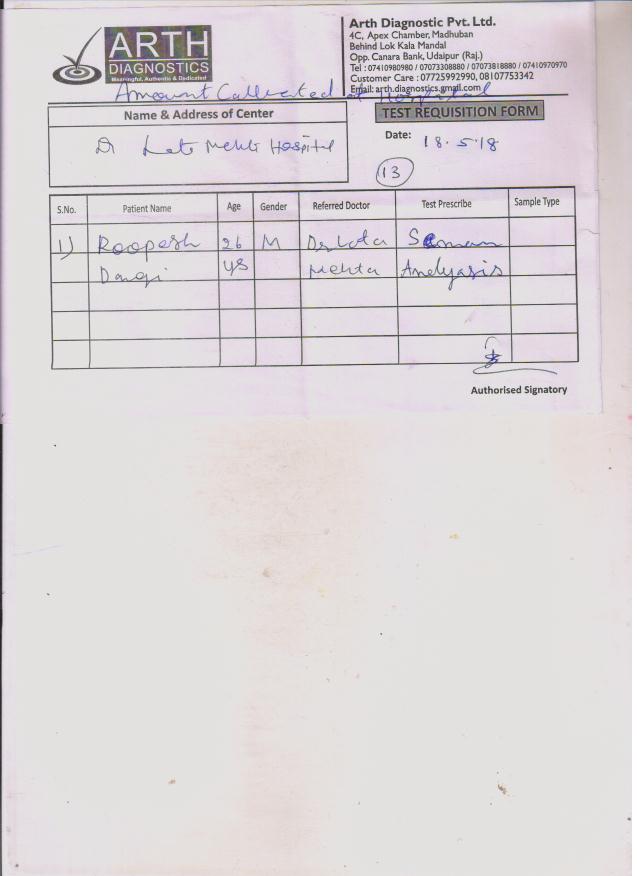 ARTH
DIAGNOSTICS
Meaningful, Authentic & Dedicated
Arth Diagnostic Pvt. Ltd.
4C, Apex Chamber, Madhuban
Behind Lok Kala Mandal
Opp. Canara Bank, Udaipur (Raj.)
Tel : 07410980980 / 07073308880 / 07073818880 / 07410970970
Customer Care : 07725992990, 08107753342
Email: arth.diagnostics.gmail.com
Amount Collected at Hospital
Name & Address of Center
Dr Lata Mehta Hospital
TEST REQUISITION FORM
Date: 18.5.18
13
S.No. Patient Name Age Gender Referred Doctor Test Prescribe Sample Type
1) Roopesh 26 M Dr Lata Seman
Dangi ys Mehta Analyasis
Authorised Signatory